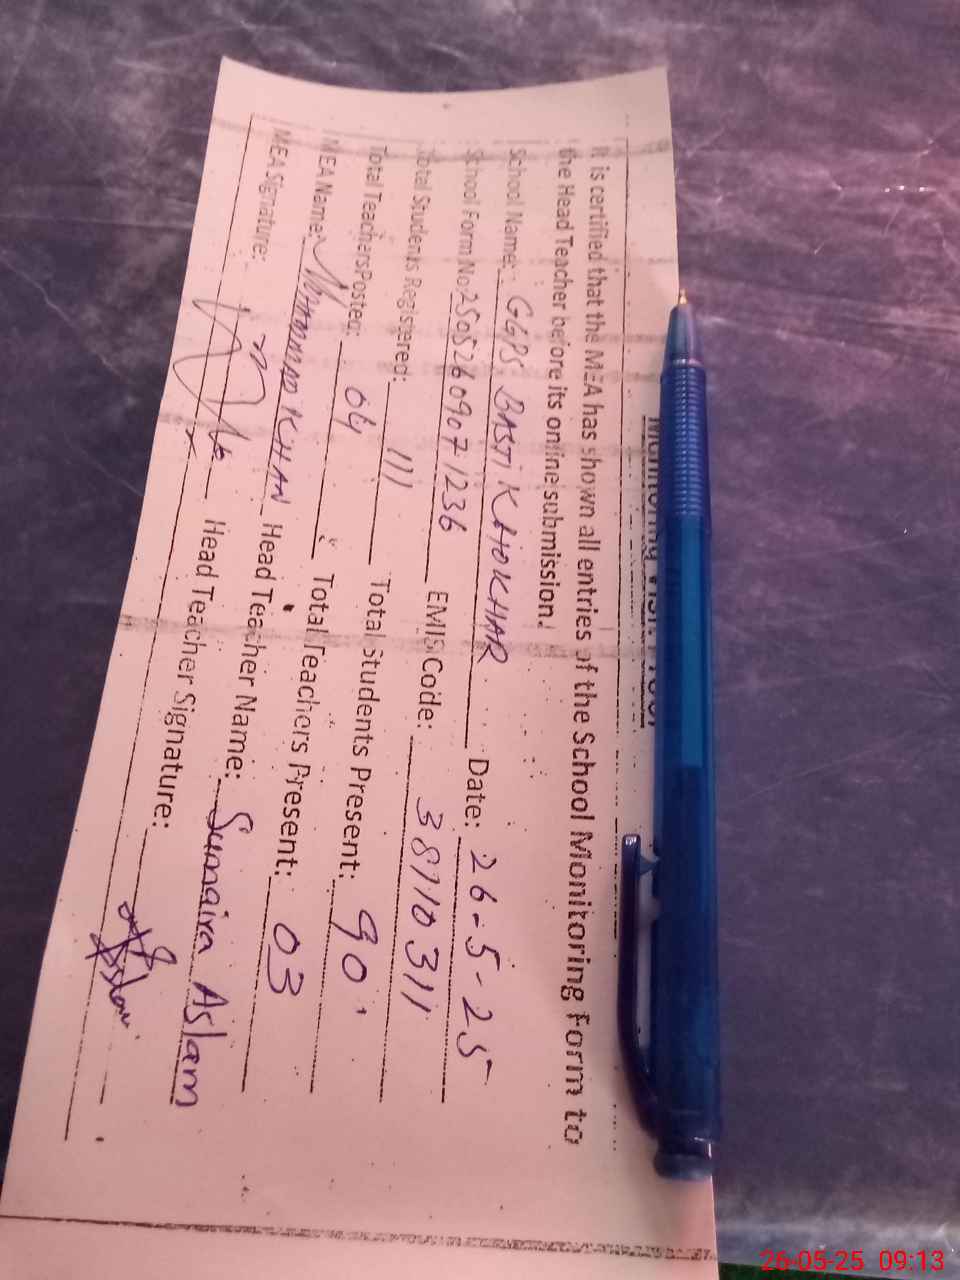 It is certified that the MEA has shown all entries of the School Monitoring Form to
the Head Teacher before its online submission.
School Name: GGPS BASTI KHOKHAR Date: 26-5-25
School Form No: 25052609071236 EMIS Code: 38710311
Total Students Registered: 111 Total Students Present: 90
Total Teachers Posted: 04 Total Teachers Present: 03
MEA Name: MUHAMMAD KHAN Head Teacher Name: Sumaira Aslam
MEA Signature: Head Teacher Signature: Aslam
26-05-25 09:13